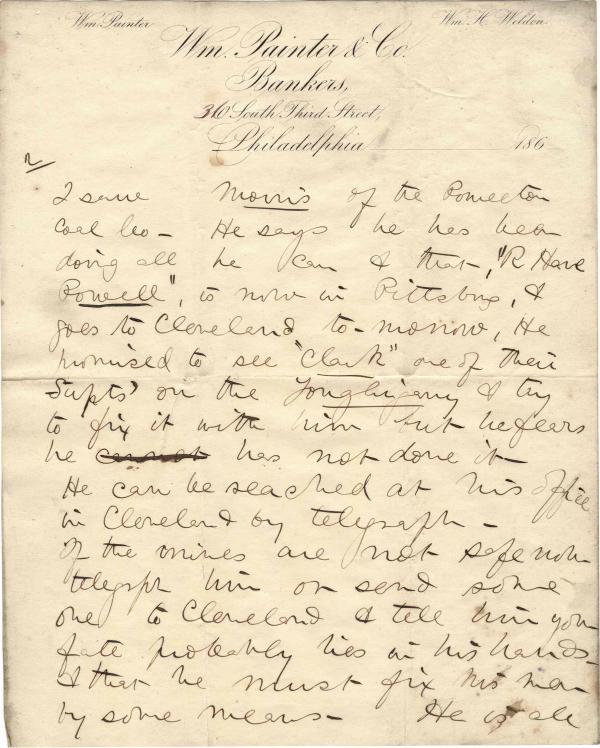 Wm. Painter Wm. H. Weldon
Wm. Painter & Co.
Bankers,
36 South Third Street,
Philadelphia 186
2/
I saw Morris of the
Coal Co - He says he has been
doing all he can & that, "R Hare
Powell", is now in Pittsburg, &
goes to Cleveland to-morrow, He
promised to see "Clark" one of their
Supts' on the & try
to fix it with him but he fears
he cannot has not done it -
He can be reached at his office
in Cleveland by telegraph -
If the mines are not safe now
telegrph him or send some
one to Cleveland & tell him your
fate probably lies in his hands -
& that he must fix his man
by some means - He is all